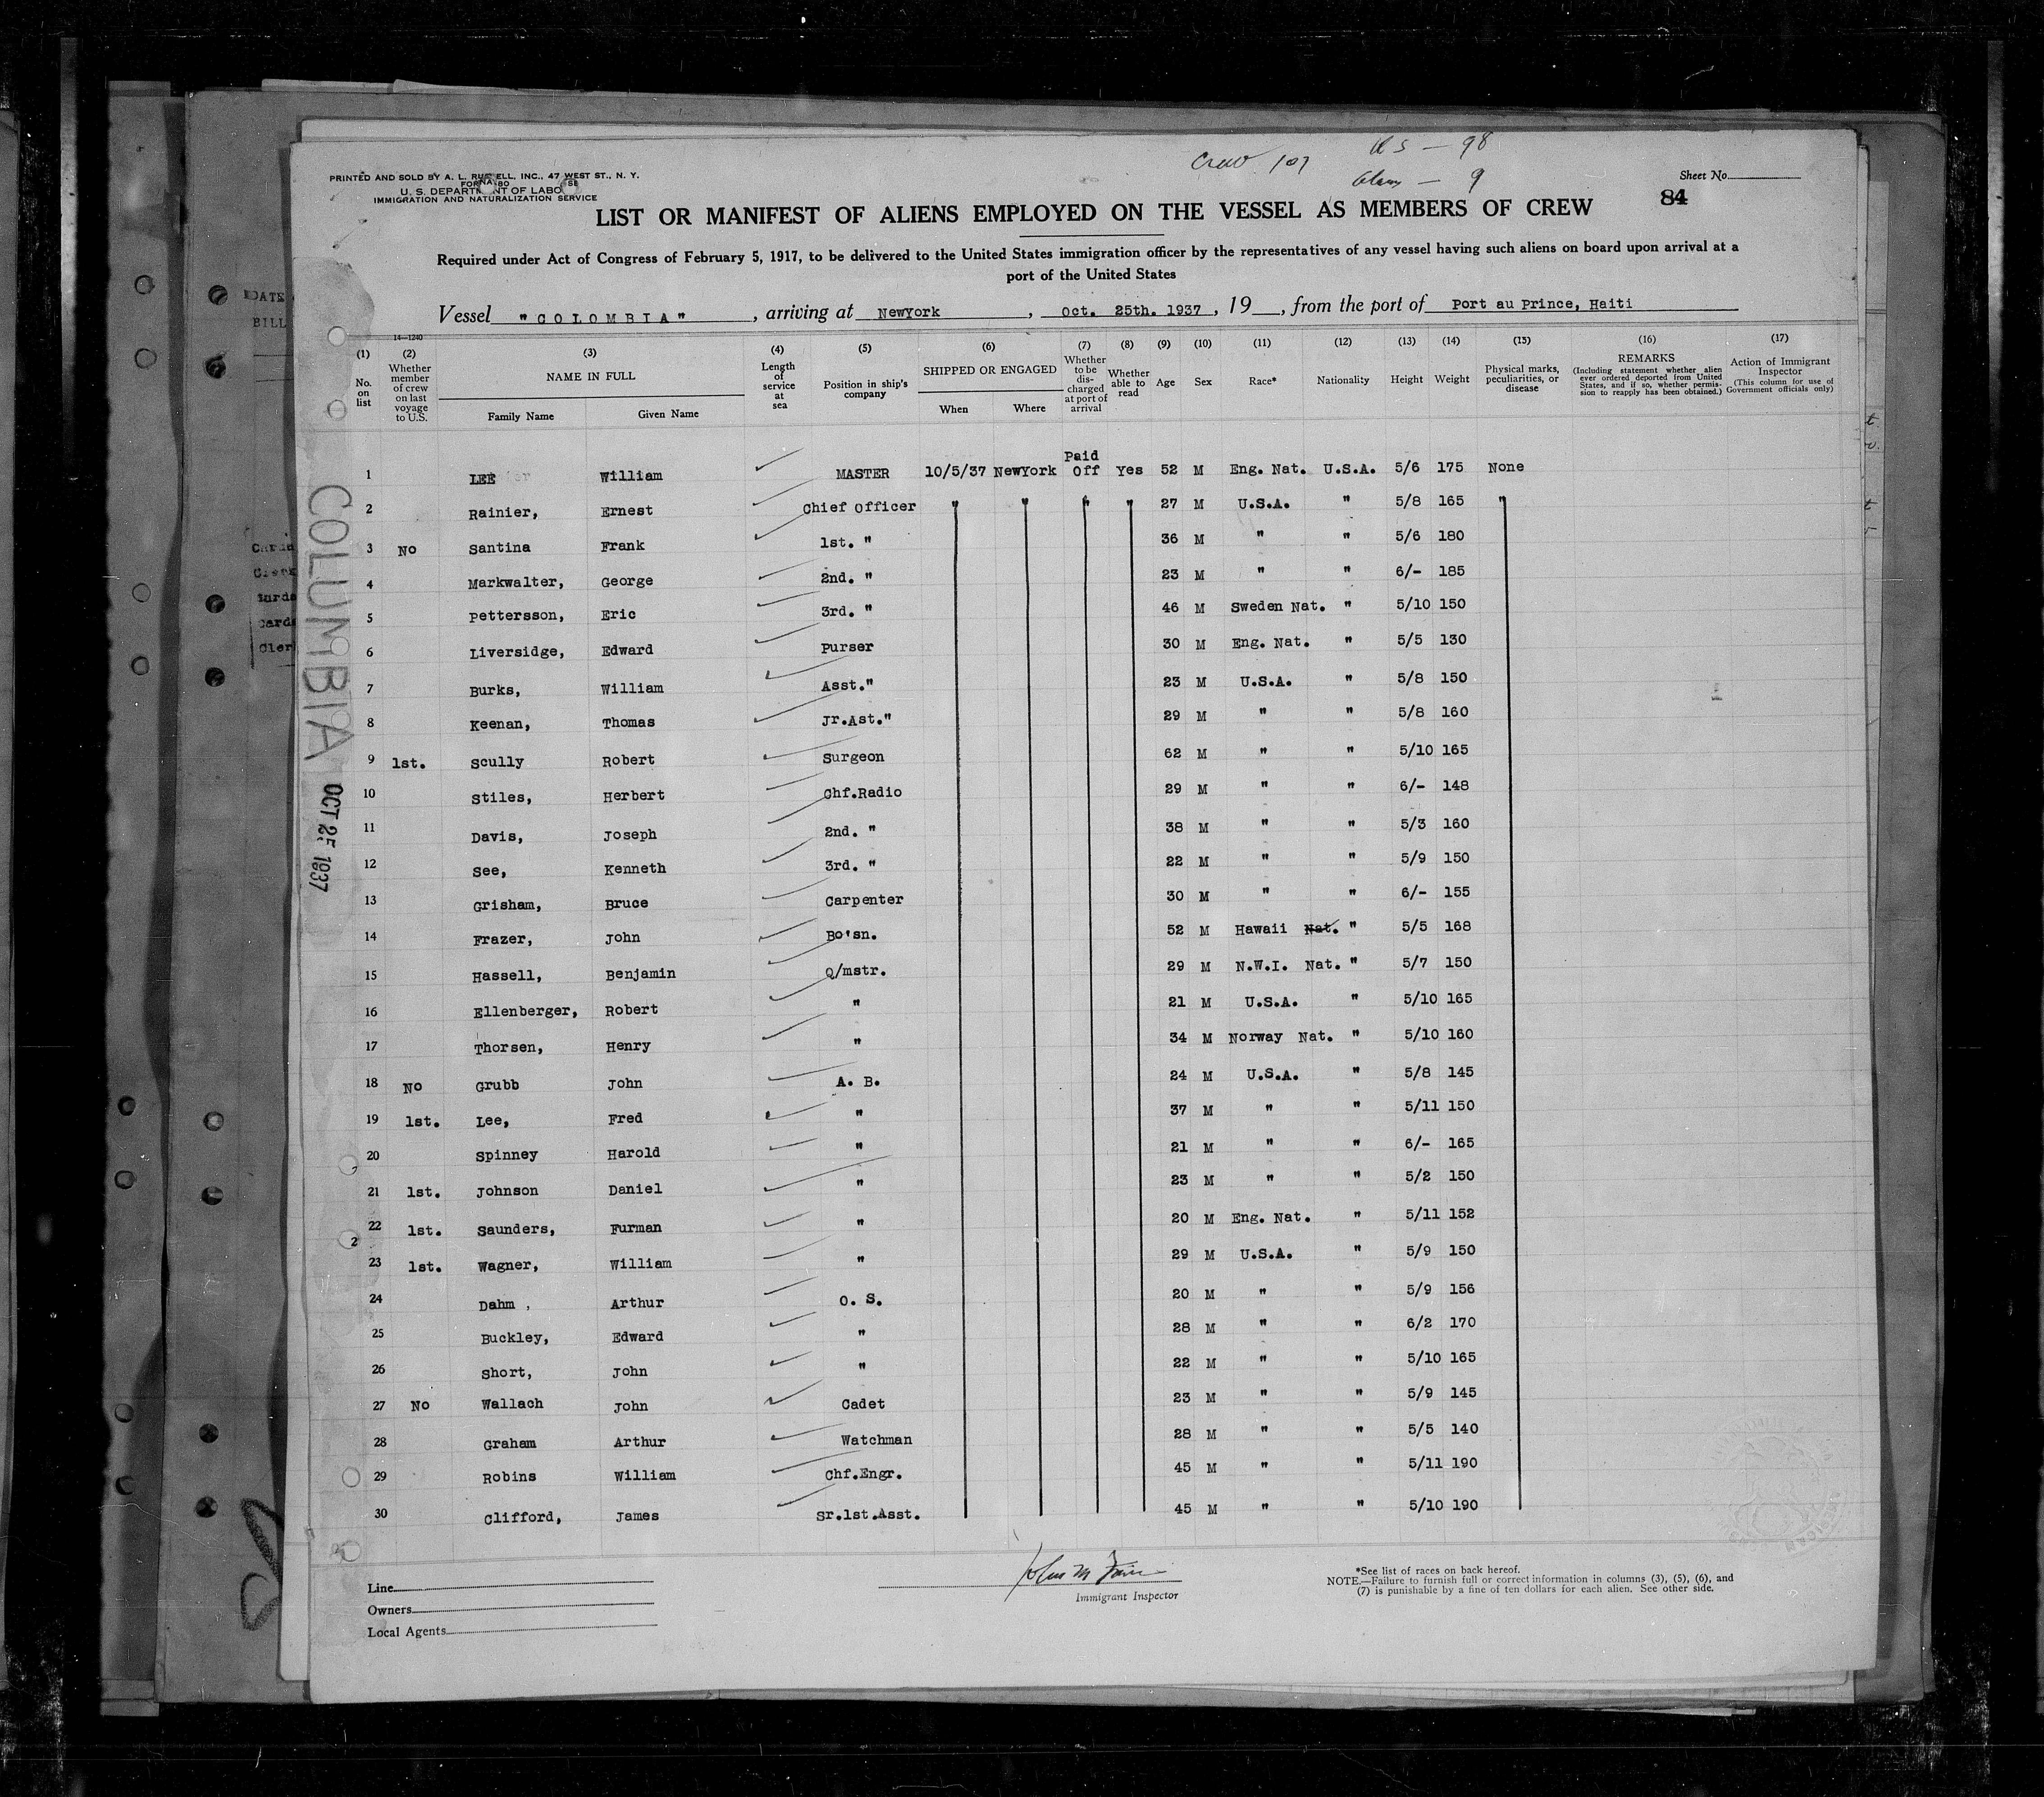 Crew 107 US — 98
Aliens — 9
PRINTED AND SOLD BY A. L. RUSSELL, INC., 47 WEST ST., N. Y.
U. S. DEPARTMENT OF LABOR
IMMIGRATION AND NATURALIZATION SERVICE
Sheet No.
84
LIST OR MANIFEST OF ALIENS EMPLOYED ON THE VESSEL AS MEMBERS OF CREW
Required under Act of Congress of February 5, 1917, to be delivered to the United States immigration officer by the representatives of any vessel having such aliens on board upon arrival at a
port of the United States
Vessel "COLOMBIA", arriving at NewYork, Oct. 25th. 1937, 19__, from the port of Port au Prince, Haiti
14—1240
(1) No. on list
(2) Whether member of crew on last voyage to U.S.
(3) NAME IN FULL Family Name Given Name
(4) Length of service at sea
(5) Position in ship's company
(6) SHIPPED OR ENGAGED When Where
(7) Whether to be discharged at port of arrival
(8) Whether able to read
(9) Age
(10) Sex
(11) Race*
(12) Nationality
(13) Height
(14) Weight
(15) Physical marks, peculiarities, or disease
(16) REMARKS (Including statement whether alien ever ordered deported from United States, and if so, whether permission to reapply has been obtained.)
(17) Action of Immigrant Inspector (This column for use of Government officials only)
1 LEE William MASTER 10/5/37 NewYork Paid Off Yes 52 M Eng. Nat. U.S.A. 5/6 175 None
2 Rainier, Ernest Chief Officer " " " " 27 M U.S.A. " 5/8 165 "
3 No Santina Frank 1st. " 36 M " " 5/6 180
4 Markwalter, George 2nd. " 23 M " " 6/- 185
5 Pettersson, Eric 3rd. " 46 M Sweden Nat. " 5/10 150
6 Liversidge, Edward Purser 30 M Eng. Nat. " 5/5 130
7 Burks, William Asst." 23 M U.S.A. " 5/8 150
8 Keenan, Thomas Jr.Ast." 29 M " " 5/8 160
9 1st. Scully Robert Surgeon 62 M " " 5/10 165
10 Stiles, Herbert Chf.Radio 29 M " " 6/- 148
11 Davis, Joseph 2nd. " 38 M " " 5/3 160
12 See, Kenneth 3rd. " 22 M " " 5/9 150
13 Grisham, Bruce Carpenter 30 M " " 6/- 155
14 Frazer, John Bo'sn. 52 M Hawaii Nat. " 5/5 168
15 Hassell, Benjamin Q/mstr. 29 M N.W.I. Nat. " 5/7 150
16 Ellenberger, Robert " 21 M U.S.A. " 5/10 165
17 Thorsen, Henry " 34 M Norway Nat. " 5/10 160
18 No Grubb John A. B. 24 M U.S.A. " 5/8 145
19 1st. Lee, Fred " 37 M " " 5/11 150
20 Spinney Harold " 21 M " " 6/- 165
21 1st. Johnson Daniel " 23 M " " 5/2 150
22 1st. Saunders, Furman " 20 M Eng. Nat. " 5/11 152
23 1st. Wagner, William " 29 M U.S.A. " 5/9 150
24 Dahm , Arthur O. S. 20 M " " 5/9 156
25 Buckley, Edward " 28 M " " 6/2 170
26 Short, John " 22 M " " 5/10 165
27 No Wallach John Cadet 23 M " " 5/9 145
28 Graham Arthur Watchman 28 M " " 5/5 140
29 Robins William Chf.Engr. 45 M " " 5/11 190
30 Clifford, James Sr.1st.Asst. 45 M " " 5/10 190
COLUMBIA
OCT 25 1937
2
DATE
BILL
Line
Owners
Local Agents
Immigrant Inspector
*See list of races on back hereof.
NOTE.—Failure to furnish full or correct information in columns (3), (5), (6), and
(7) is punishable by a fine of ten dollars for each alien. See other side.